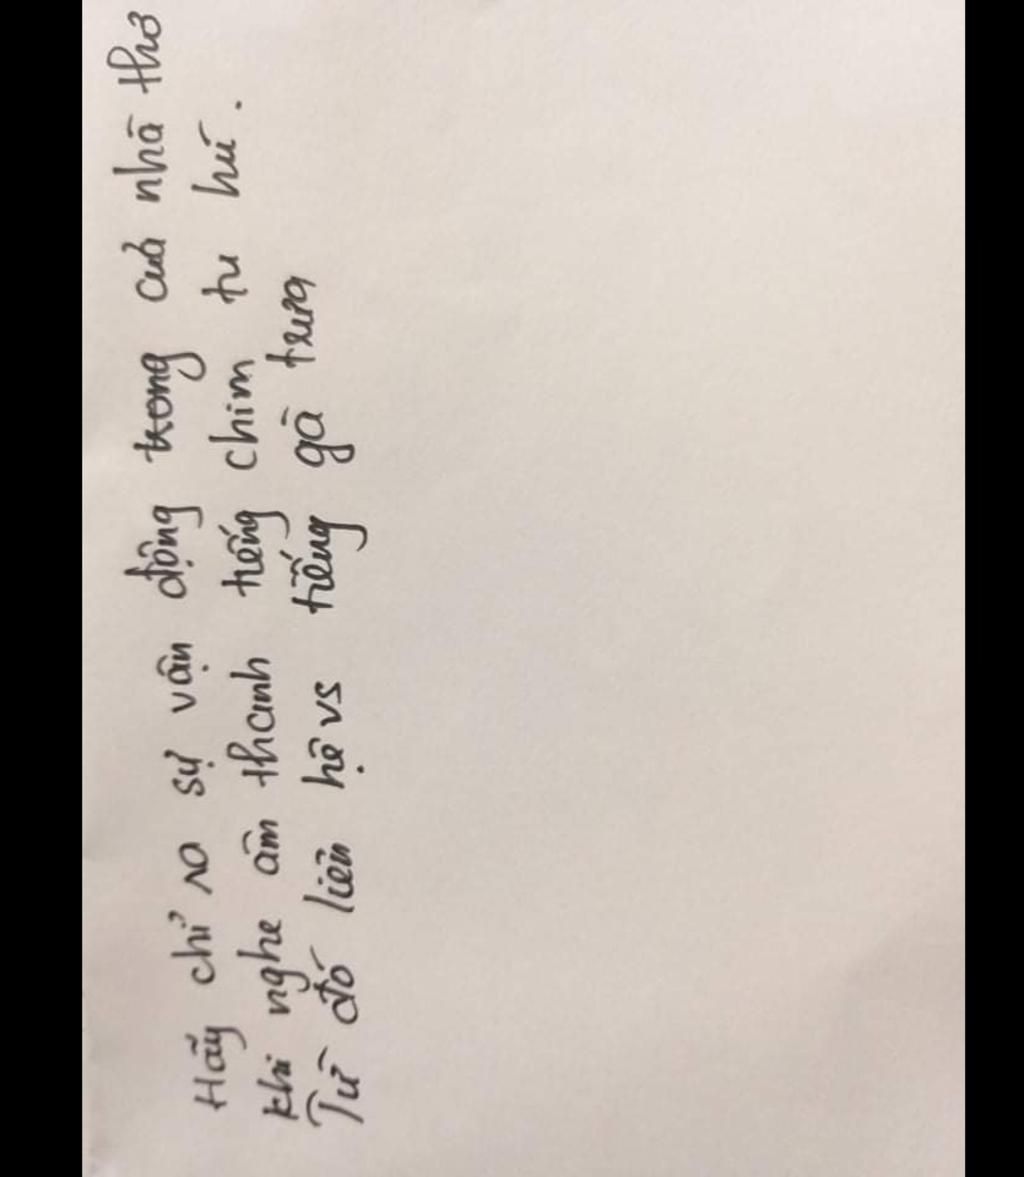 Hãy chỉ ra sự vận động trong của nhà thơ
khi nghe âm thanh tiếng chim tu hú.
Từ đó liên hệ vs tiếng gà trưa